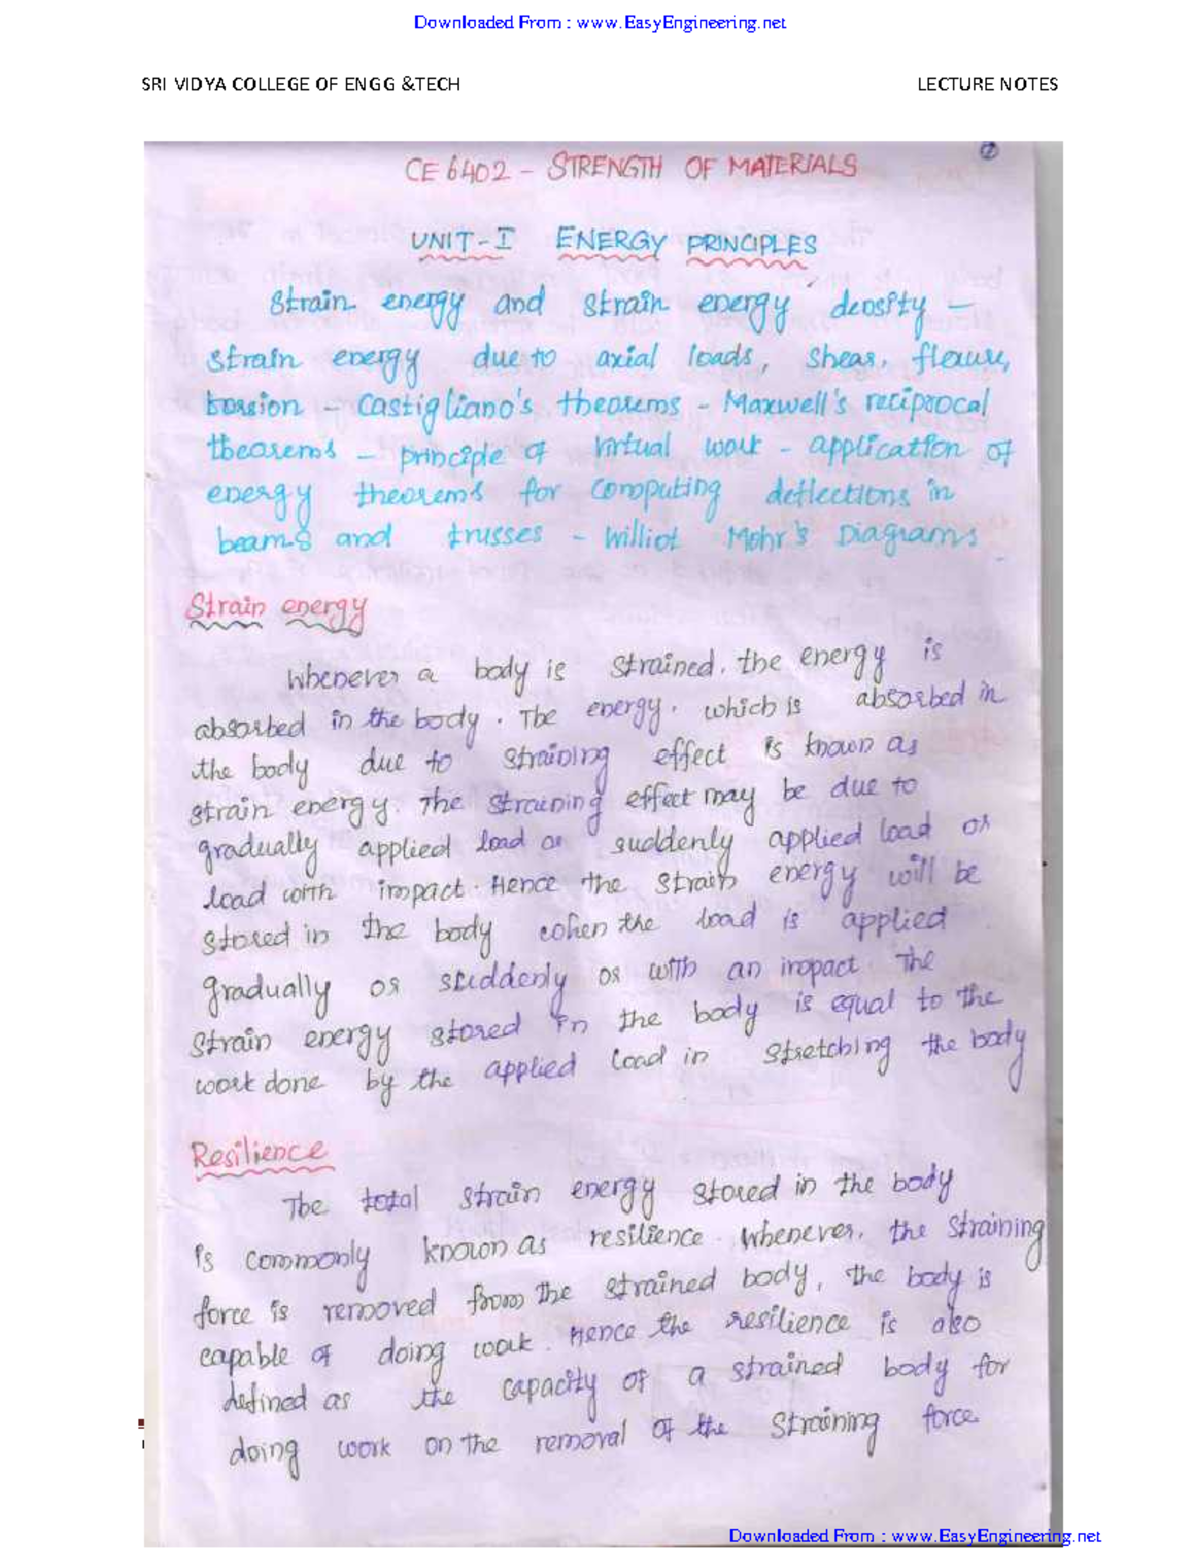 Downloaded From : www.EasyEngineering.net
SRI VIDYA COLLEGE OF ENGG &TECH LECTURE NOTES
CE 6402 - STRENGTH OF MATERIALS
UNIT-I ENERGY PRINCIPLES
Strain energy and strain energy density -
strain energy due to axial loads, shear, flexure,
torsion - Castigliano's theorems - Maxwell's reciprocal
theorems - principle of virtual work - application of
energy theorems for computing deflections in
beams and trusses - Williot Mohr's Diagrams
Strain energy
Whenever a body is strained. the energy is
absorbed in the body. The energy, which is absorbed in
the body due to straining effect is known as
strain energy. The straining effect may be due to
gradually applied load or suddenly applied load or
load with impact. Hence the strain energy will be
stored in the body when the load is applied
gradually or suddenly or with an impact. The
strain energy stored in the body is equal to the
work done by the applied load in stretching the body
Resilience
The total strain energy stored in the body
is commonly known as resilience. Whenever, the straining
force is removed from the strained body, the body is
capable of doing work. Hence the resilience is also
defined as the capacity of a strained body for
doing work on the removal of the straining force
Downloaded From : www.EasyEngineering.net